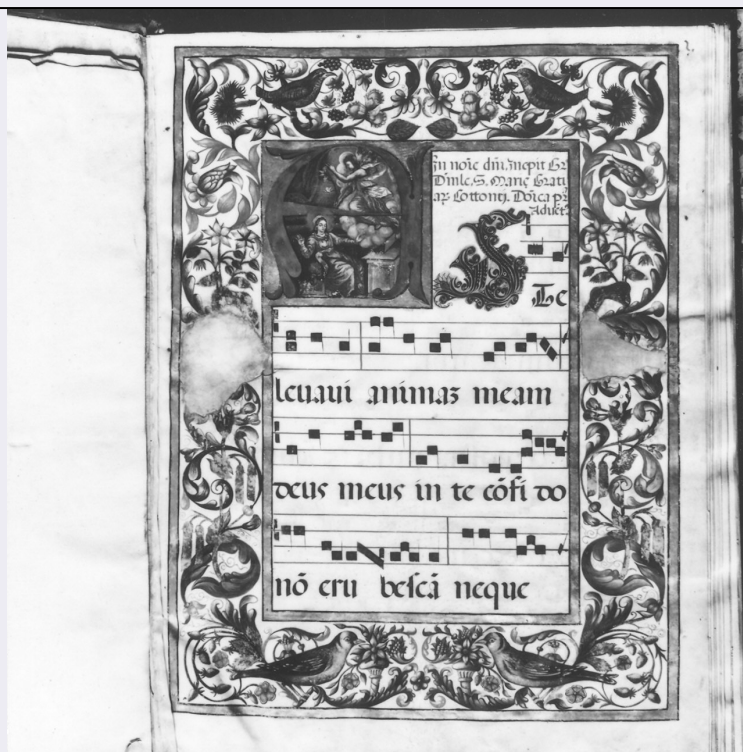 In noīe dn̄i. Incpit Gr̄
Dn̄ile. S. Marię Grati
aꝝ Cottontj. Dōica pꝛ
Aduēt
AD Te
leuaui animaꝫ meam
deus meus in te cōfi do
nō eru bescā neque